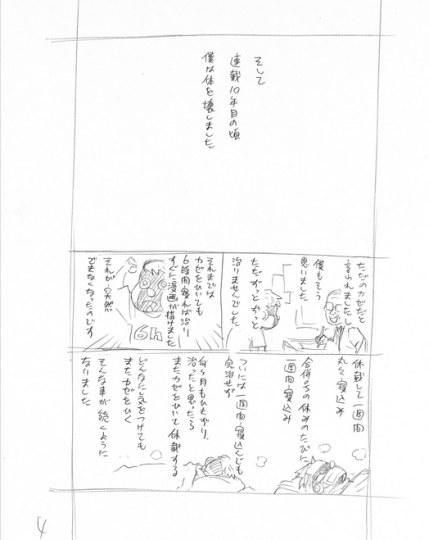 そして
連載10年目の頃
僕は体を壊しました
ただのカゼだと
言われましたし
僕もそう
思いました
ただずっとずっと
治りませんでした
それまでは
カゼをひいても
6時間寝れば治り
すぐに漫画が描けました
6h
それが突然
できなくなったのです
休載して一週間
丸々寝込み
合併号の休みのたびに
一週間寝込み
ついには一週間寝込んでも
完治せず
何ヶ月もひきずり
治ったと思ったら
またカゼをひいて休載する
どんなに気をつけても
またカゼをひく
そんな事が続くように
なりました
4